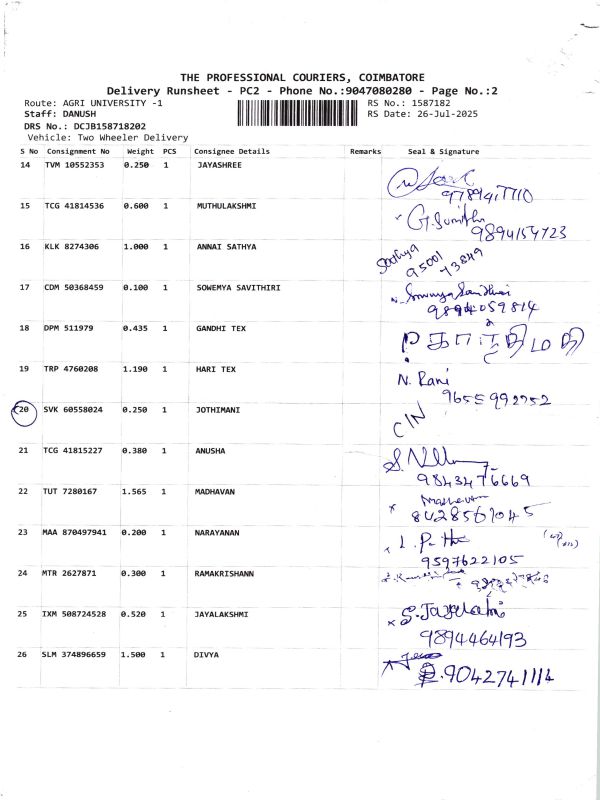 THE PROFESSIONAL COURIERS, COIMBATORE
Delivery Runsheet - PC2 - Phone No.:9047080280 - Page No.:2
Route: AGRI UNIVERSITY -1 RS No.: 1587182
Staff: DANUSH RS Date: 26-Jul-2025
DRS No.: DCJB158718202
Vehicle: Two Wheeler Delivery
S No Consignment No Weight PCS Consignee Details Remarks Seal & Signature
14 TVM 10552353 0.250 1 JAYASHREE
9789417710
15 TCG 41814536 0.600 1 MUTHULAKSHMI G. Sumithi
9894154723
16 KLK 8274306 1.000 1 ANNAI SATHYA Sathya
95001 73849
17 CDM 50368459 0.100 1 SOWEMYA SAVITHIRI Sowmya Savithiri
9894059814
18 DPM 511979 0.435 1 GANDHI TEX
19 TRP 4760208 1.190 1 HARI TEX N. Rani
9655992752
20 SVK 60558024 0.250 1 JOTHIMANI C/N
21 TCG 41815227 0.380 1 ANUSHA
9843476669
22 TUT 7280167 1.565 1 MADHAVAN Madhavan
8428561045
23 MAA 870497941 0.200 1 NARAYANAN
9597622105
24 MTR 2627871 0.300 1 RAMAKRISHANN
25 IXM 508724528 0.520 1 JAYALAKSHMI S. Jayalakmi
9894464193
26 SLM 374896659 1.500 1 DIVYA
9042741114